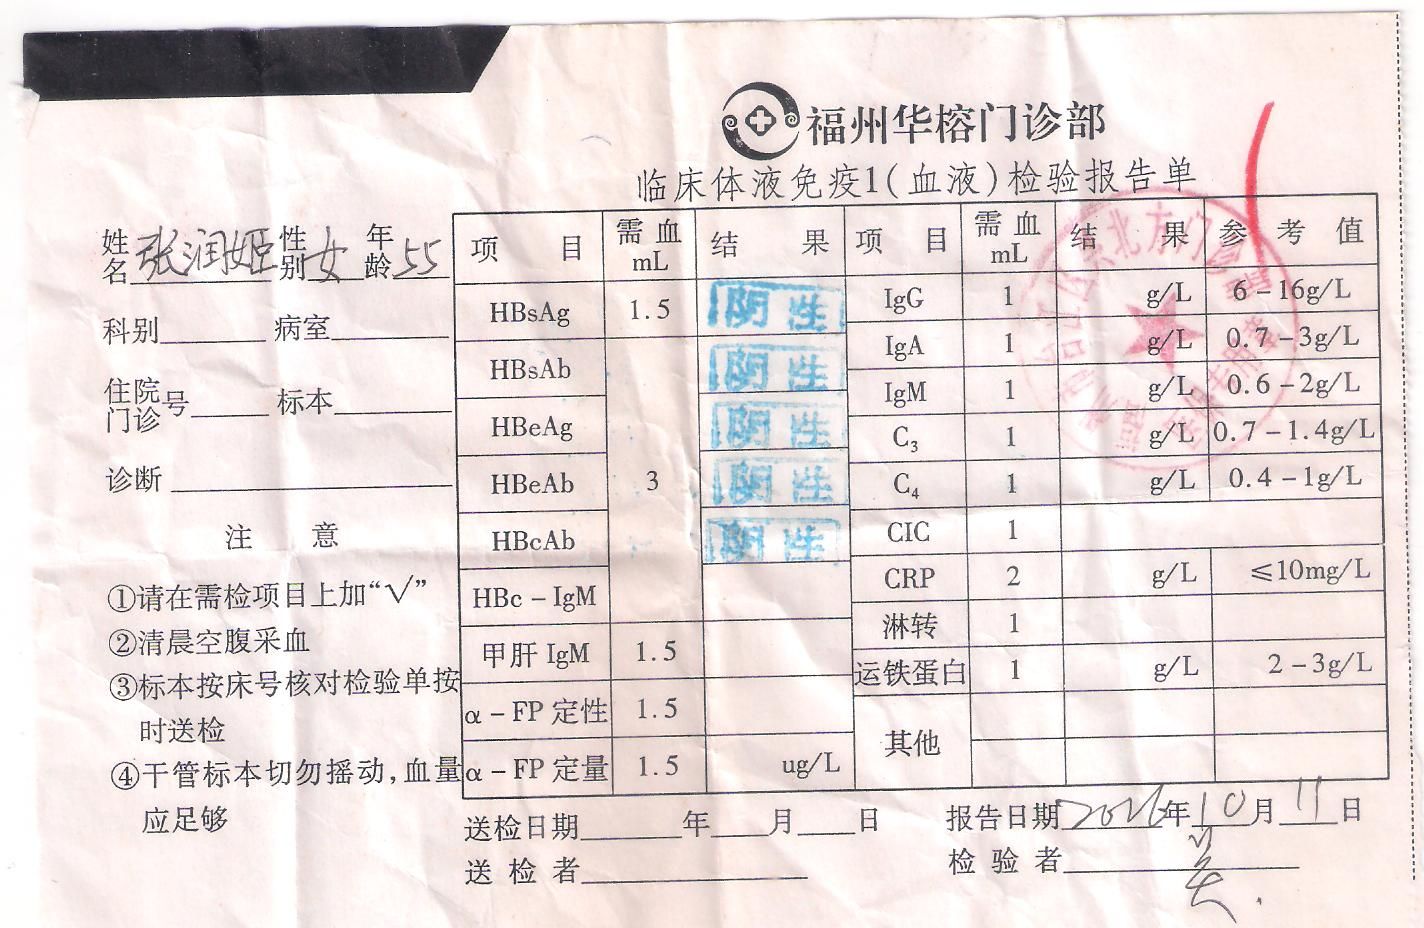 福州华榕门诊部
临床体液免疫1(血液)检验报告单
姓名 张润姬 性别 女 年龄 55
科别 病室
住院门诊号 标本
诊断
注 意
①请在需检项目上加“√”
②清晨空腹采血
③标本按床号核对检验单按
时送检
④干管标本切勿摇动,血量
应足够
项 目 需血 mL 结 果 项 目 需血 mL 结 果 参 考 值
HBsAg 1.5 阴性 IgG 1 g/L 6-16g/L
HBsAb 阴性 IgA 1 g/L 0.7-3g/L
HBeAg 阴性 IgM 1 g/L 0.6-2g/L
C3 1 g/L 0.7-1.4g/L
HBeAb 3 阴性 C4 1 g/L 0.4-1g/L
HBcAb 阴性 CIC 1
HBc-IgM CRP 2 g/L ≤10mg/L
淋转 1
甲肝 IgM 1.5 运铁蛋白 1 g/L 2-3g/L
α-FP 定性 1.5 其他
α-FP 定量 1.5 ug/L
送检日期 年 月 日 报告日期 2016年10月11日
送 检 者 检 验 者